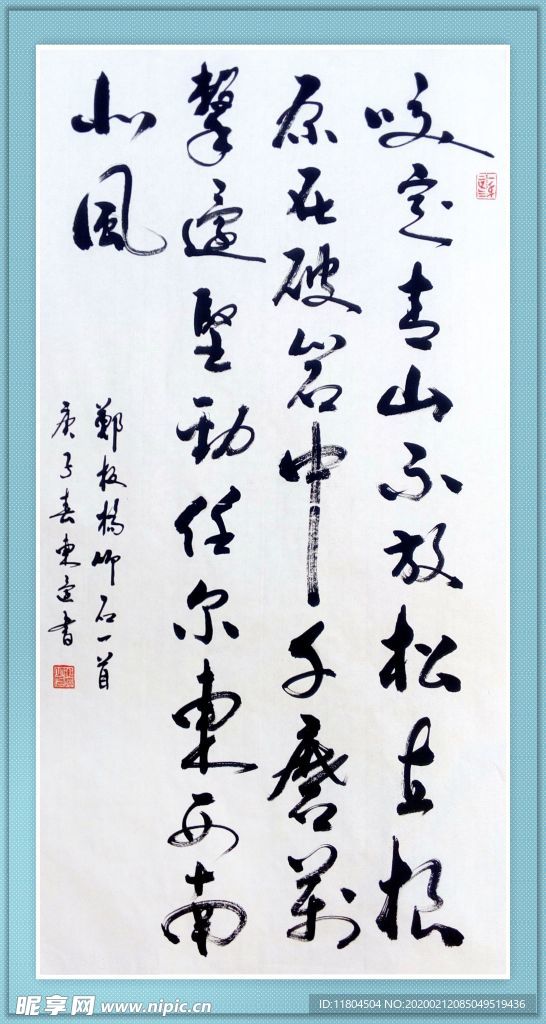 咬定青山不放松立根
原在破岩中千磨萬
擊還堅勁任尔東西南
北風
鄭板橋竹石一首
庚子春東書
昵享网 www.nipic.cn
ID:11804504 NO:20200212085049519436